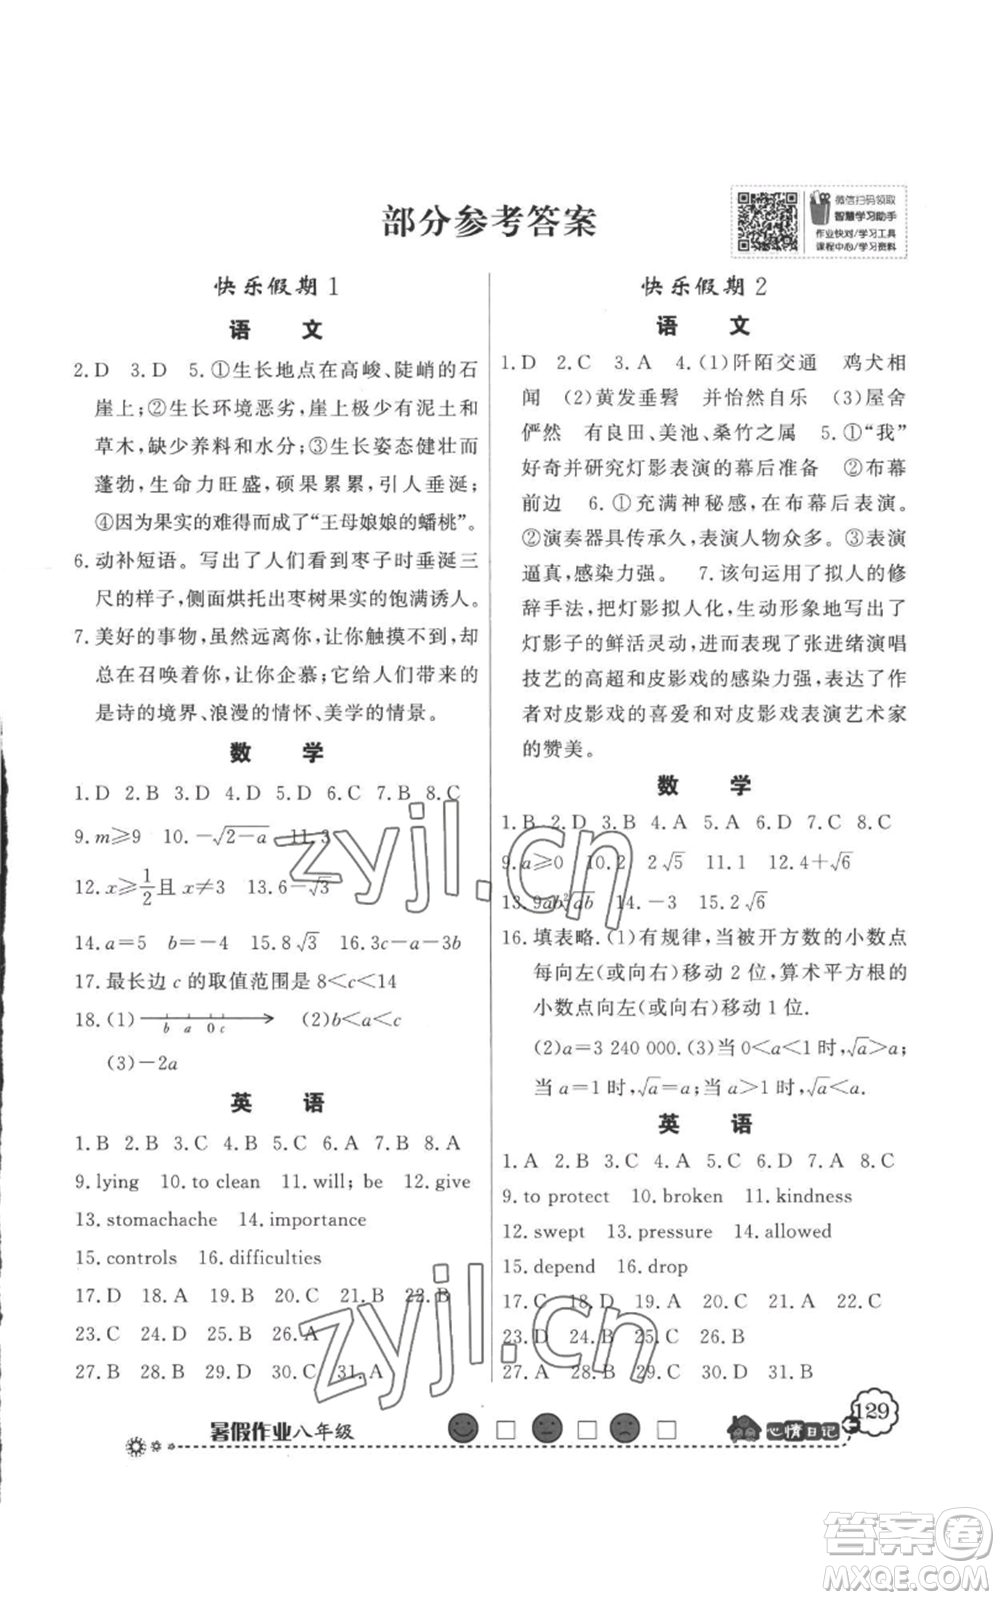 部分参考答案
微信扫码领取
智慧学习助手
作业快对/学习工具
课程中心/学习资料
快乐假期1
语 文
2.D 3.D 5.①生长地点在高峻、陡峭的石
崖上;②生长环境恶劣,崖上少有泥土和
草木,缺少养料和水分;③生长姿态健壮
蓬勃,生命力旺盛,硕果累累,引人垂涎;
④因为果实的难得而成了“王母娘娘的蟠桃”。
6. 动补短语。写出了人们看到枣子时垂涎三
尺的样子,侧面烘托出枣树果实的饱满诱人。
7. 美好的事物,虽然远离你,让你触摸不到,却
总在召唤着你,让你企慕;它给人们带来的
是诗的境界、浪漫的情怀、美学的情景。
数 学
1.D 2.B 3.D 4.D 5.D 6.C 7.B 8.C
9.m≥9 10.-√(2-a) 11.3
12.x≥1/2且x≠3 13.6-√3
14.a=5 b=-4 15.8√3 16.3c-a-3b
17.最长边c的取值范围是8<c<14
18.(1) b a 0 c (2)b<a<c
(3)-2a
英 语
1.B 2.B 3.C 4.B 5.C 6.A 7.B 8.A
9.lying 10.to clean 11.will; be 12.give
13.stomachache 14.importance
15.controls 16.difficulties
17.D 18.A 19.B 20.C 21.B 22.B
23.C 24.D 25.B 26.A
27.B 28.A 29.B 30.C 31.A
快乐假期2
语 文
1.D 2.C 3.A 4.(1)阡陌交通 鸡犬相
闻 (2)黄发垂髫 并怡然自乐 (3)屋舍
俨然 有良田、美池、桑竹之属 5.①“我”
好奇并研究灯影表演的幕后准备 ②布幕
前边 6.①充满神秘感,在布幕后表演。
②演奏器具传承久,表演人物众多。③表演
逼真,感染力强。 7.该句运用了拟人的修
辞手法,把灯影拟人化,生动形象地写出了
灯影子的鲜活灵动,进而表现了张进绪演唱
技艺的高超和皮影戏的感染力强,表达了作
者对皮影戏的喜爱和对皮影戏表演艺术家
的赞美。
数 学
1.B 2.D 3.B 4.A 5.A 6.D 7.C 8.C
9.a≥0 10.2 2√5 11.1 12.4+√6
13.9ab²√(ab) 14.-3 15.2√6
16.填表略.(1)有规律,当被开方数的小数点
每向左(或向右)移动2位,算术平方根的
小数点向左(或向右)移动1位.
(2)a=3 240 000.(3)当0<a<1时,√a>a;
当a=1时,√a=a;当a>1时,√a<a.
英 语
1.A 2.B 3.C 4.B 5.A 6.B 7.A 8.C
9.to protect 10.broken 11.kindness
12.swept 13.pressure 14.allowed
15.depend 16.drop
17.C 18.D 19.A 20.C 21.A 22.C
23.D 24.B 25.C 26.B
27.A 28.B 29.C 30.D 31.B
暑假作业八年级
心情日记
129
zyjl.cn
zyjl.cn
答案卷
MXQE.COM